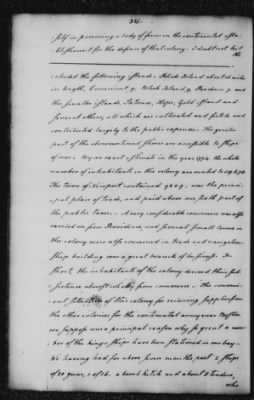 self in procuring a body of forces on the continental esta-
blishment for the defence of that colony. I doubt not but
the
included the following islands. Block Island about nine
in length, Conanicut 9, Rhode Island 9, Prudence 7, and
the smaller islands, Patience, Hope, Gold Island and
several others, all which are cultivated and fertile and
contributed largely to the public expences. The greater
part of the abovementioned shores are accessible to ships
of war. By an exact estimate in the year 1774 the whole
number of inhabitants in the colony amounted to 59,678
The town of Newport contained 9209, was the princi-
pal place of trade, and paid above one sixth part of
the public taxes. A very considerable commerce was also
carried on from Providence, and several small towns in
the colony were also concerned in trade and navigation.
Ship building was a great branch of business. In
short the inhabitants of the colony derived their sub-
sistence almost wholly from commerce. The conveni-
ent situation of the colony for receiving supplies from
the other colonies for the continental army near Boston
we suppose were a principal reason why so great a num-
ber of the kings ships have been stationed in our bay.
We having had for above four months past 2 ships
of 20 guns, 1 of 16. a bomb ketch and about 8 tenders,
who